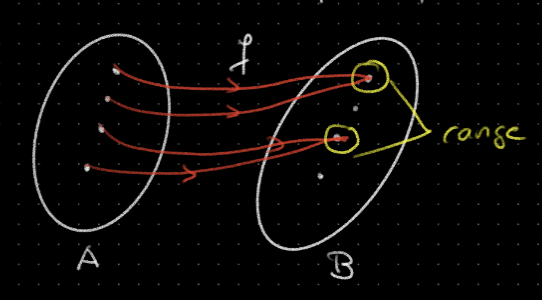 f
range
A
B